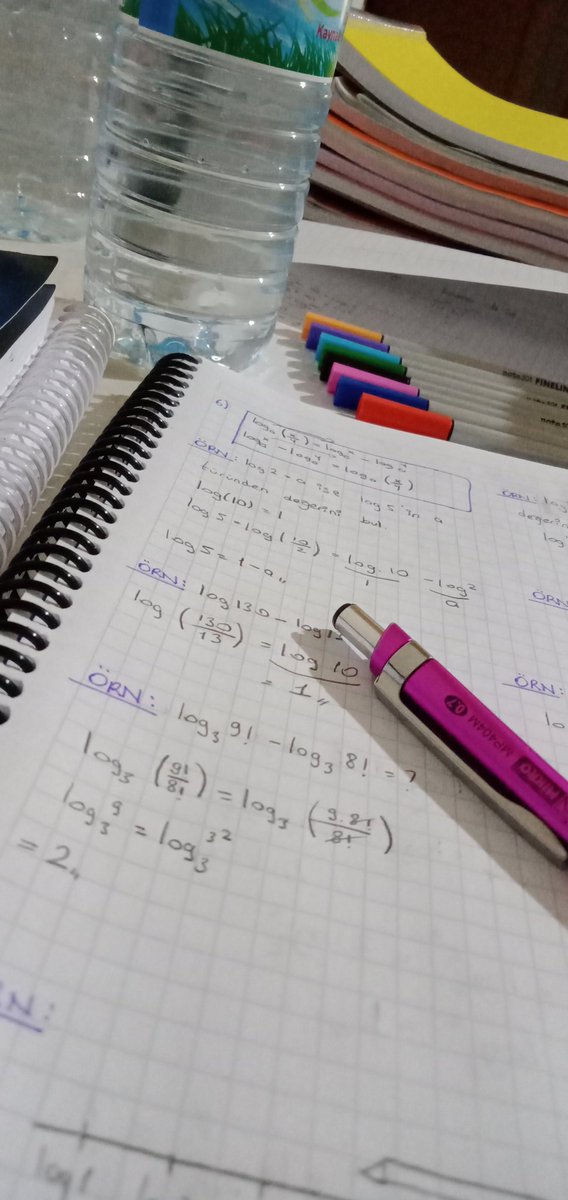 Kayna
FINELIN
6) logₐ(x/y) = logₐx − logₐy
logₐx − logₐy = logₐ(x/y)
ÖRN: log2 = a ise log5'in a
türünden değerini bul.
log(10) = 1
log5 = log(10/2) = log10/1 − log2/a
log5 = 1 − a,,
ÖRN: log130 − log1
log (130/13) = log 10
= 1,,
ÖRN: log₃ 9! − log₃ 8! = ?
log₃ (9!/8!) = log₃ (9.8!/8!)
log₃9 = log₃3²
= 2,,
RN:
log1
ÖRN: log
değerin
log
ÖRN
ÖRN:
lo
MP404M 0.7 MIKRO